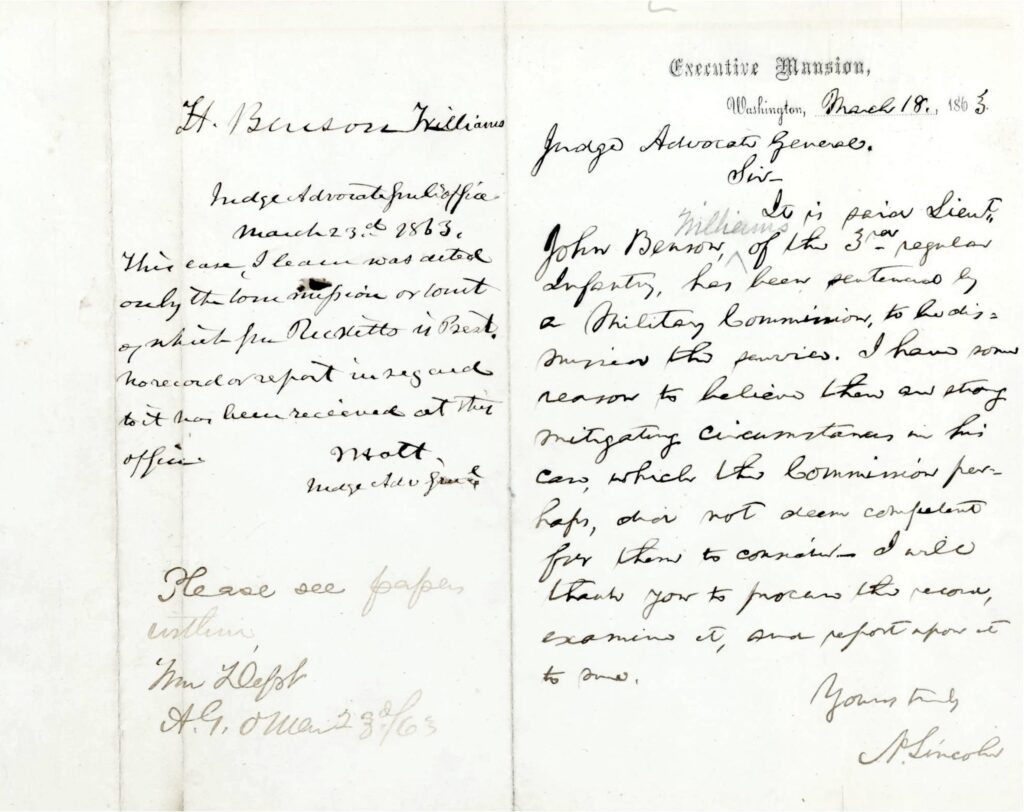 H. Benson Williams
Judge Advocate Genl's office
March 23.d 1863.
This case, I learn was acted
on by the commission or court
of which Genl Ricketts is Prest.
No record or report in regard
to it has been received at this
office
J Holt,
Judge Adv Genl
Please see papers
within
War Dept
A.G.O Mar 23d/63
Executive Mansion,
Washington, March 18., 1863
Judge Advocate General.
Sir—
It is said Lieut.
Williams
John Benson, ^ of the 3rd regular
Infantry, has been sentenced by
a Military Commission, to be dis=
missed the service. I have some
reason to believe there are strong
mitigating circumstances in his
case, which the Commission per-
haps, did not deem competent
for them to consider— I will
thank you to procure the record,
examine it, and report upon it
to me.
Yours truly
A. Lincoln